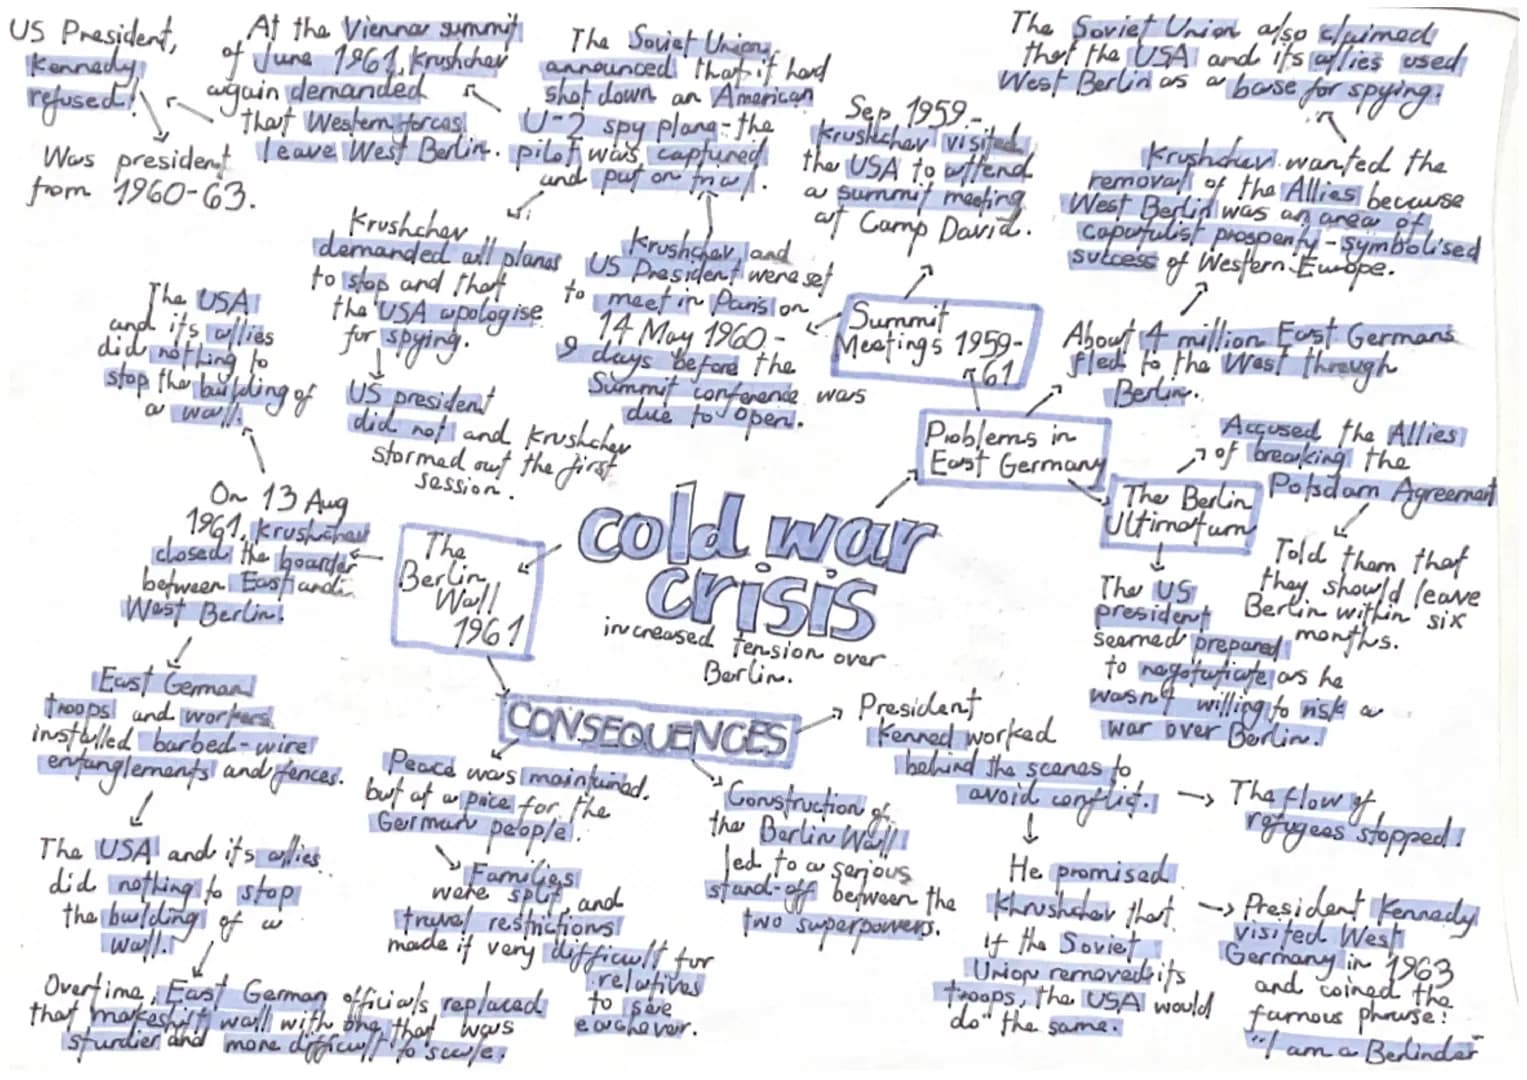 US President,
Kennedy
refused!
Was president
from 1960-63.
At the Vienna summit
of June 1961, Krushchev
again demanded
that Western forces
leave West Berlin.
The Soviet Union
announced that it had
shot down an American
U-2 spy plane - the
pilot was captured
and put on trial.
Sep 1959 -
Krushchev visited
the USA to attend
a summit meeting
at Camp David.
The Soviet Union also claimed
that the USA and its allies used
West Berlin as a base for spying.
Krushchev wanted the
removal of the Allies because
West Berlin was an area of
capitalist prosperity - symbolised
success of Western Europe.
Krushchev
demanded all planes
to stop and that
the USA apologise
for spying.
US president
did not and Krushchev
stormed out the first
session.
Krushchev and
US President were set
to meet in Paris on
14 May 1960 -
9 days before the
Summit conference was
due to open.
Summit
Meetings 1959-
61
About 4 million East Germans
fled to the West through
Berlin.
Problems in
East Germany
The Berlin
Ultimatum
Accused the Allies
of breaking the
Potsdam Agreement
Told them that
they should leave
Berlin within six
months.
The US
president
seemed prepared
to as he
wasn't willing to risk a
war over Berlin.
The USA
and its allies
did nothing to
stop the building of
a wall.
On 13 Aug
1961, Krushchev
closed the boarder
between East and
West Berlin.
The
Berlin
Wall
1961
cold war
crisis
increased tension over
Berlin.
East German
troops and workers
installed barbed-wire
entanglements and fences.
The USA and its allies
did nothing to stop
the building of a
wall.
Overtime, East German officials replaced
that makeshift wall with one that was
sturdier and more difficult to scale.
CONSEQUENCES
Peace was maintained.
but at a price for the
German people.
Families
were split, and
travel restrictions
made it very difficult for
relatives
to see
eachover.
Construction of
the Berlin Wall
led to a serious
stand-off between the
two superpowers.
President
Kenned worked
behind the scenes to
avoid conflict.
The flow of
refugees stopped!
He promised
Khrushchev that
if the Soviet
Union removed its
troops, the USA would
do the same.
President Kennedy
visited West
Germany in 1963
and coined the
famous phrase:
"I am a Berlinder"